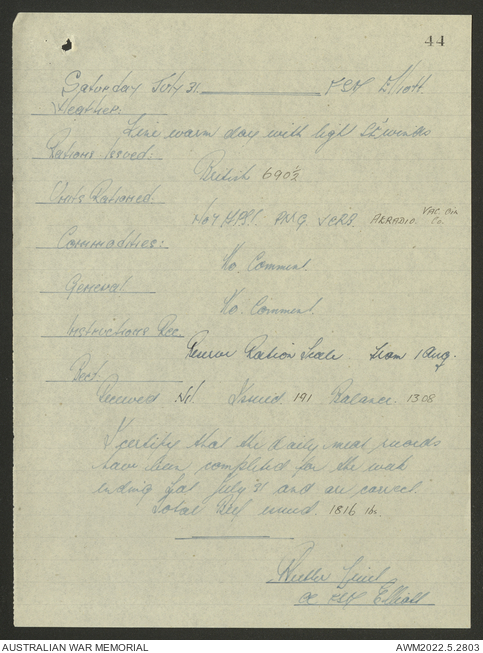 44
Saturday July 31. FSD Elliott.
Weather:
Fine warm day with light winds
Rations Issued:
British 690½
Units Rationed.
PMG ARRADIO. Vac Oil Co.
Commodities:
No. Comment.
General
No. Comment.
Instructions Rec.
Ration Scale from 1 Aug.
Beef.
Received Nil Issued. 191 Balance. 1308
I certify that the daily meat records
have been completed for the week
ending Sat July 31 and are correct.
Total Beef issued. 1816 lb.
OC FSD Elliott
AUSTRALIAN WAR MEMORIAL
AWM2022.5.2803